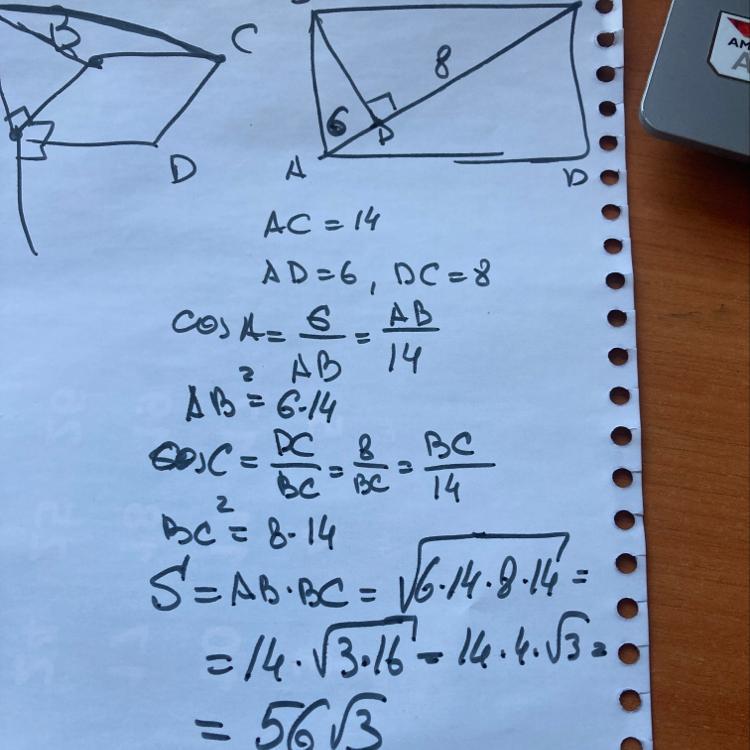 B
C
D
8
6
D
A
D
AM
A
AC = 14
AD = 6, DC = 8
cos A = 6/AB = AB/14
AB² = 6·14
cos C = DC/BC = 8/BC = BC/14
BC² = 8·14
S = AB·BC = √(6·14·8·14) =
= 14·√(3·16) = 14·4·√3 =
= 56√3